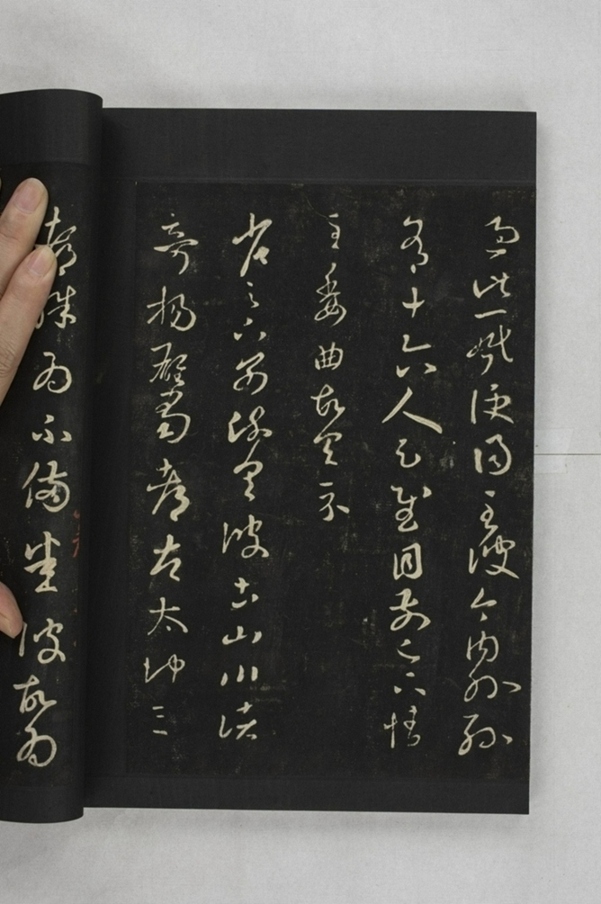 過此一婚便得至彼今内外孫
有十六人足慰目前足下情
至委曲故具示
省足下別疏具彼土山川諸
奇揚雄蜀都左太沖三
都殊為不備悉彼故為